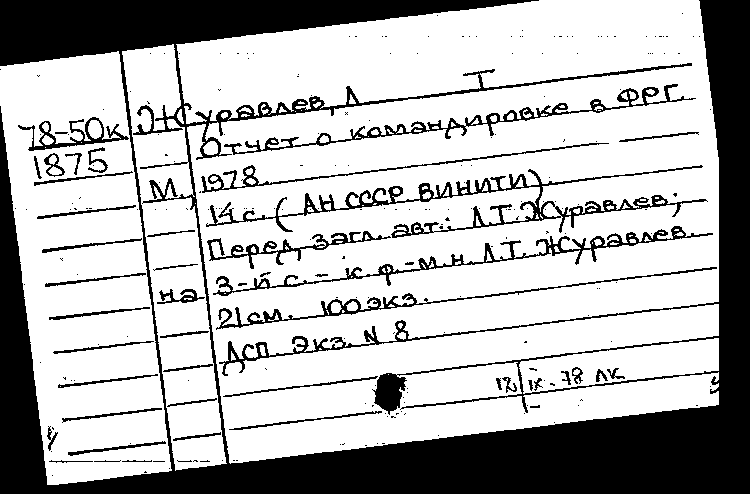 78-50к Журавлев, Л Т
1875 Отчет о командировке в ФРГ.
М., 1978.
14 с. (АН СССР ВИНИТИ).
Перед загл. авт.: Л.Т. Журавлев;
на 3-й с. - к.ф.-м.н. Л.Т. Журавлев.
21 см. 100 экз.
ДСП Экз. N 8
12/IX-78 ЛК